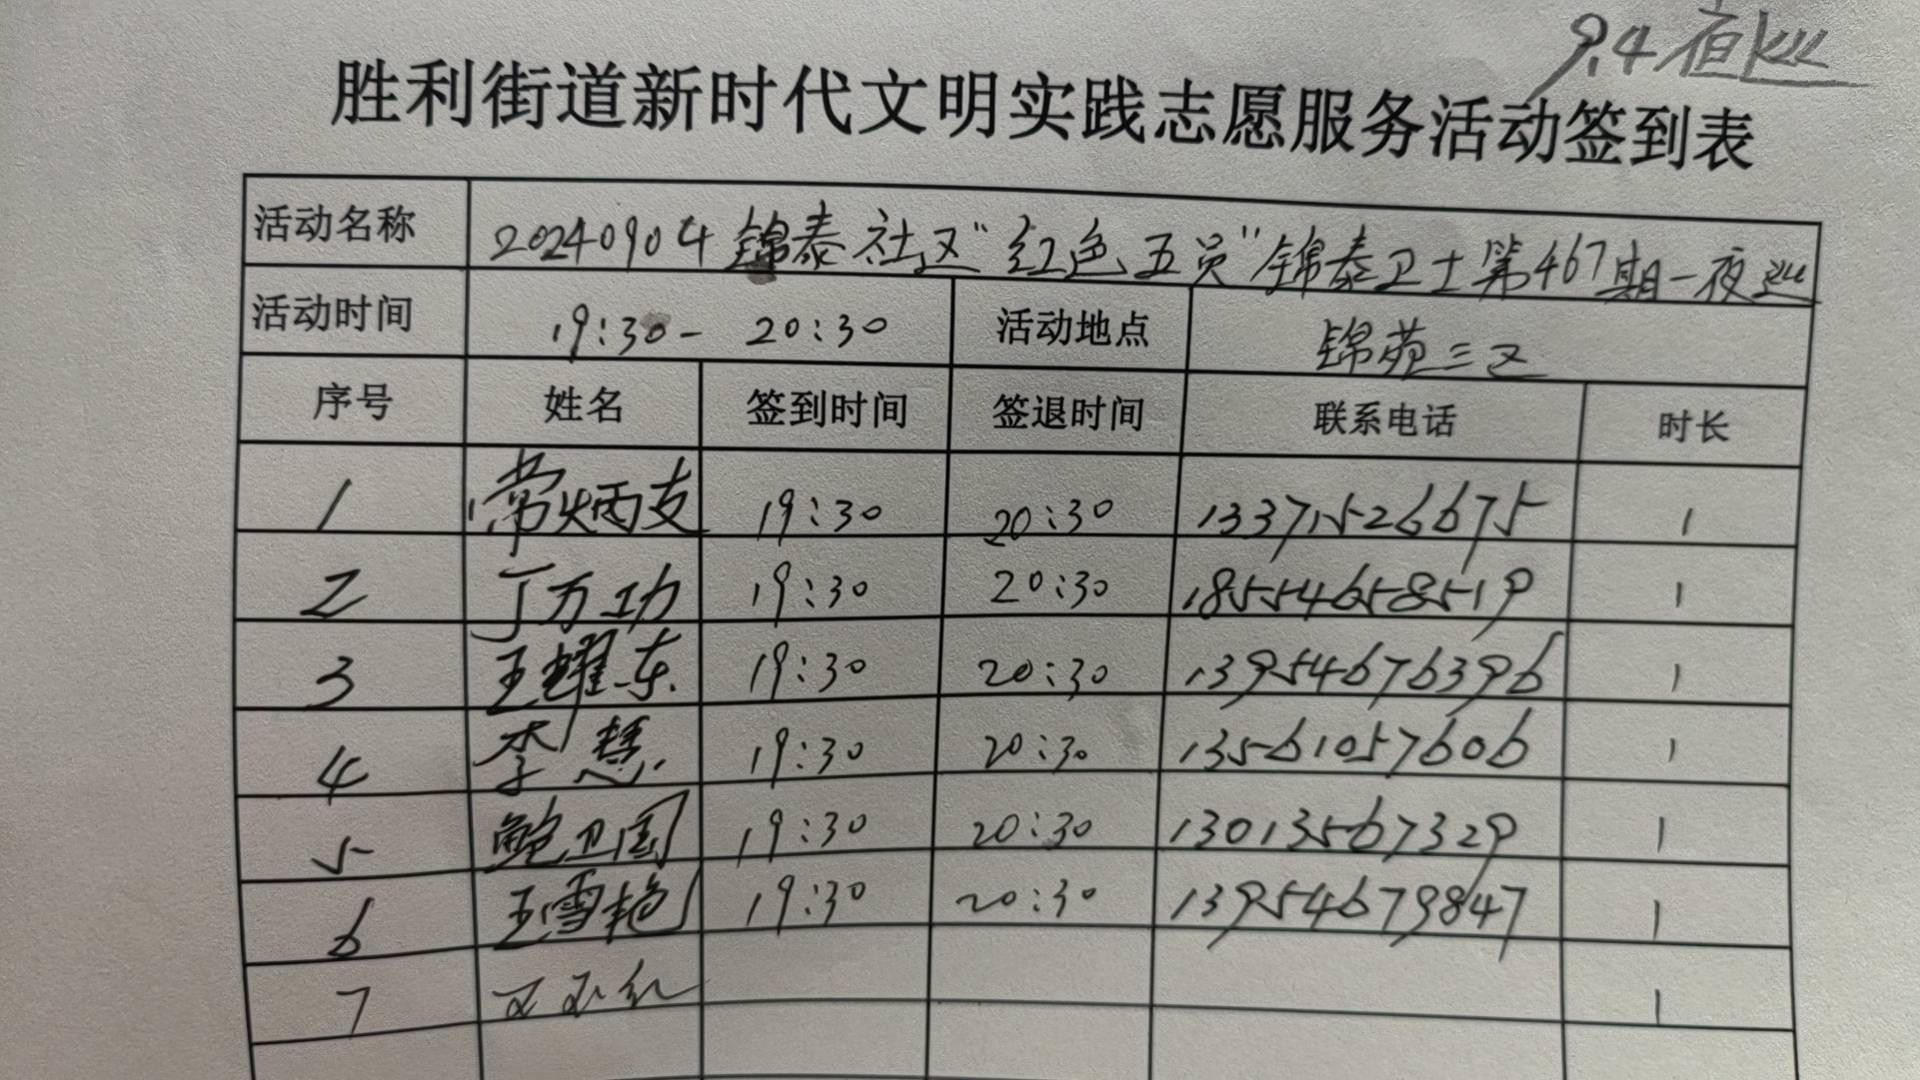 9.4夜巡
胜利街道新时代文明实践志愿服务活动签到表
活动名称 20240904锦泰社区“红色五员”锦泰卫士第467期一夜巡
活动时间 19:30- 20:30 活动地点 锦苑三区
序号 姓名 签到时间 签退时间 联系电话 时长
1 常炳支 19:30 20:30 13371526675 1
2 丁万功 19:30 20:30 18554658519 1
3 王耀东 19:30 20:30 13954676396 1
4 李慧 19:30 20:30 13561057606 1
5 鲍卫国 19:30 20:30 13013567329 1
6 王雪艳 19:30 20:30 13954679847 1
7 王玉红 1